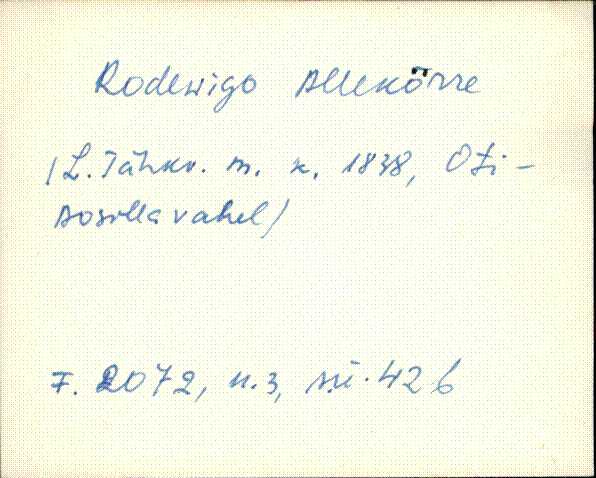 Rodewigo Allekõrre
/L. Tähkv. m. k. 1838, Oti-
soo silla vahel/
F. 2072, n. 3, sü. 426